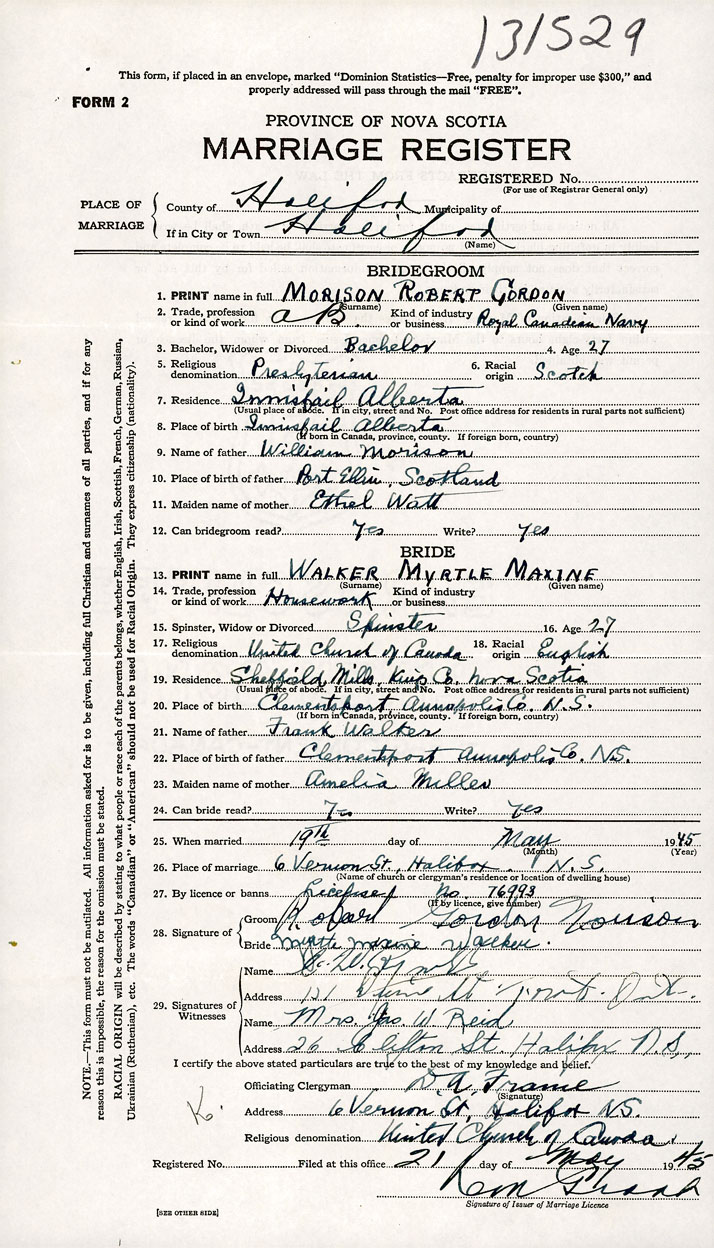 131529
This form, if placed in an envelope, marked "Dominion Statistics—Free, penalty for improper use $300," and
properly addressed will pass through the mail "FREE".
FORM 2
PROVINCE OF NOVA SCOTIA
MARRIAGE REGISTER
REGISTERED No.
(For use of Registrar General only)
PLACE OF MARRIAGE
County of Halifax Municipality of
If in City or Town Halifax
(Name)
BRIDEGROOM
1. PRINT name in full MORISON ROBERT GORDON
(Surname) (Given name)
2. Trade, profession or kind of work A.B. Kind of industry or business Royal Canadian Navy
3. Bachelor, Widower or Divorced Bachelor 4. Age 27
5. Religious denomination Presbyterian 6. Racial origin Scotch
7. Residence Innisfail Alberta
(Usual place of abode. If in city, street and No. Post office address for residents in rural parts not sufficient)
8. Place of birth Innisfail Alberta
(If born in Canada, province, county. If foreign born, country)
9. Name of father William Morison
10. Place of birth of father Port Ellin, Scotland
11. Maiden name of mother Ethel Watt
12. Can bridegroom read? Yes Write? Yes
BRIDE
13. PRINT name in full WALKER MYRTLE MAXINE
(Surname) (Given name)
14. Trade, profession or kind of work Housework Kind of industry or business
15. Spinster, Widow or Divorced Spinster 16. Age 27
17. Religious denomination United Church of Canada 18. Racial origin English
19. Residence Sheffield Mills, Kings Co. Nova Scotia
(Usual place of abode. If in city, street and No. Post office address for residents in rural parts not sufficient)
20. Place of birth Clementsport Annapolis Co. N.S.
(If born in Canada, province, county. If foreign born, country)
21. Name of father Frank Walker
22. Place of birth of father Clementsport Annapolis Co. N.S.
23. Maiden name of mother Amelia Miller
24. Can bride read? Yes Write? Yes
25. When married 19th day of May 1945
(Month) (Year)
26. Place of marriage 6 Vernon St., Halifax, N.S.
(Name of church or clergyman's residence or location of dwelling house)
27. By licence or banns License No. 76993
(If by licence, give number)
28. Signature of
Groom Robert Gordon Morison
Bride Myrtle Maxine Walker.
29. Signatures of Witnesses
Name
Address 131
Name Mrs. Jas. W Reid
Address 26 Clifton St. Halifax N.S.,
I certify the above stated particulars are true to the best of my knowledge and belief.
Officiating Clergyman D. A. Frame
(Signature)
Address 6 Vernon St, Halifax N.S.
K.
Religious denomination United Church of Canada.
Registered No. Filed at this office 21 day of May 1945
Signature of Issuer of Marriage Licence
[SEE OTHER SIDE]
NOTE.—This form must not be mutilated. All information asked for is to be given, including full Christian and surnames of all parties, and if for any
reason this is impossible, the reason for the omission must be stated.
RACIAL ORIGIN will be described by stating to what people or race each of the parents belongs, whether English, Irish, Scottish, French, German, Russian,
Ukrainian (Ruthenian), etc. The words "Canadian" or "American" should not be used for Racial Origin. They express citizenship (nationality).